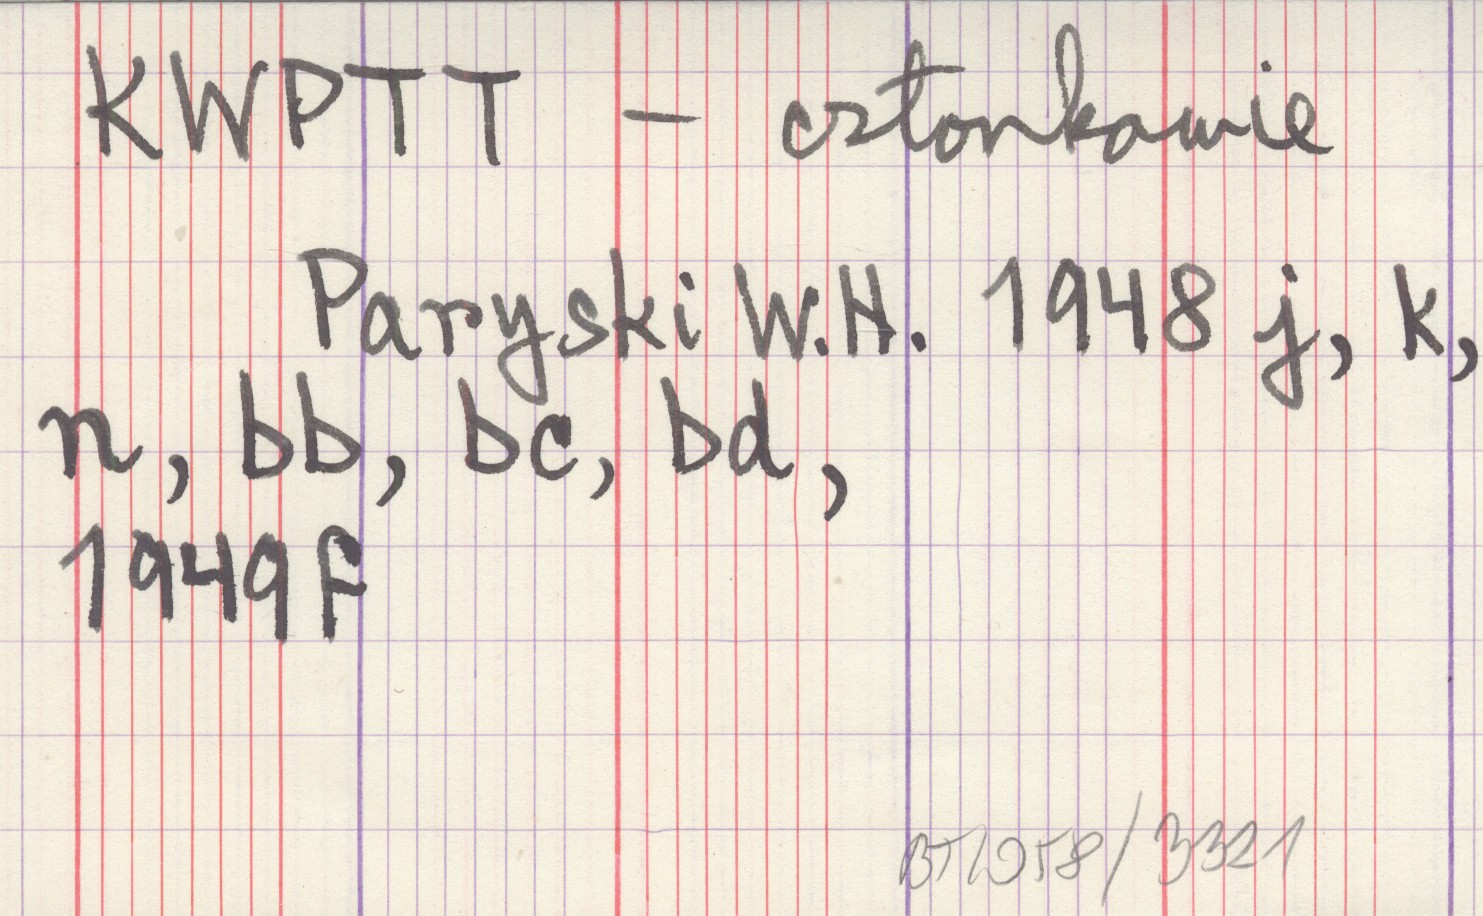 KWPTT – członkowie
Paryski W.H. 1948 j, k,
n, bb, bc, bd,
1949 f
/3321